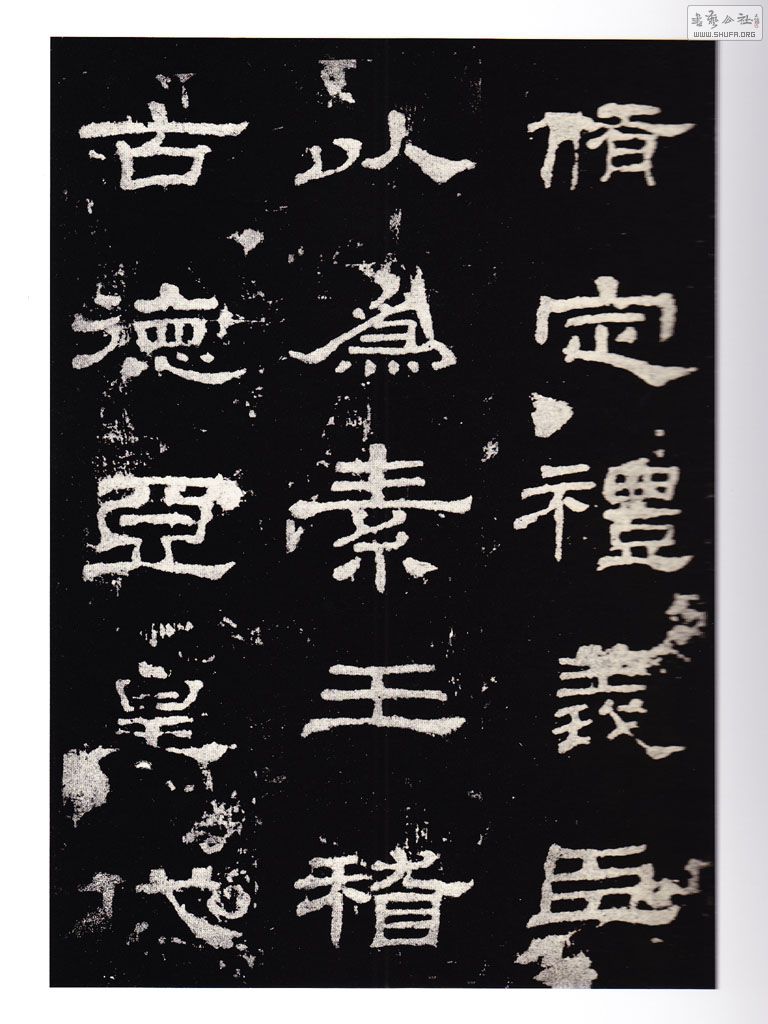 脩定禮義臣
以爲素王稽
古德亞皇代
書藝公社
WWW.SHUFA.ORG